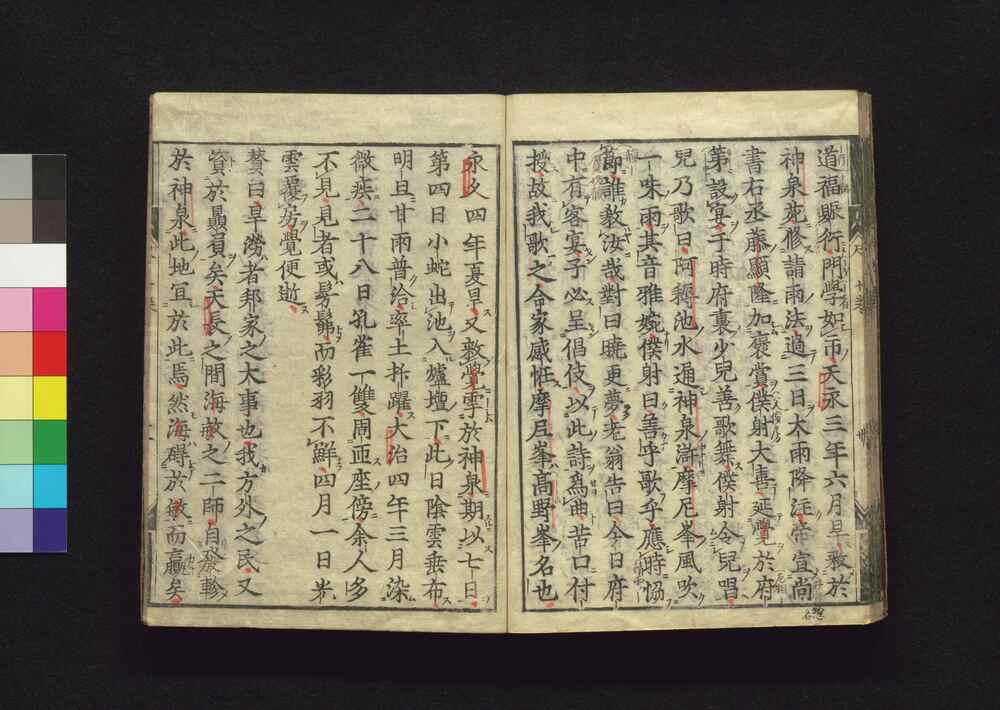 道福賑行門學如市天永三年六月旱敕於
神泉苑修請雨法過三日大雨降洼帝宣尚
書右丞藤顯隆加褒賞僕射大喜延覺於府
第設宴于時府裏少兒善歌舞僕射令兒唱
兒乃歌曰阿耨池水通神泉澍摩尼峯風吹
一味雨其音雅婉僕射曰善乎歌乎應時恊
節誰敎汝哉對曰曉更夢老翁告曰今日府
中有客宴子必呈倡伎以此詩爲曲苦口付
授故我歌之合家感恠摩尼峯高野峯名也
永久四年夏旱又敕覺雩於神泉期以七日
第四日小蛇出池入爐壇下此日陰雲垂布
明旦甘雨普洽率土抃躍大治四年三月染
微疾二十八日孔雀一雙周匝座傍余人多
不見見者或髣髴而彩羽不鮮四月一日米
雲覆房覺便逝
贊曰旱澇者邦家之大事也我方外之民又
資於贔屓矣天長之間海敏之二師自發軫
於神泉此地宜於此焉然海碍於敏而贏矣